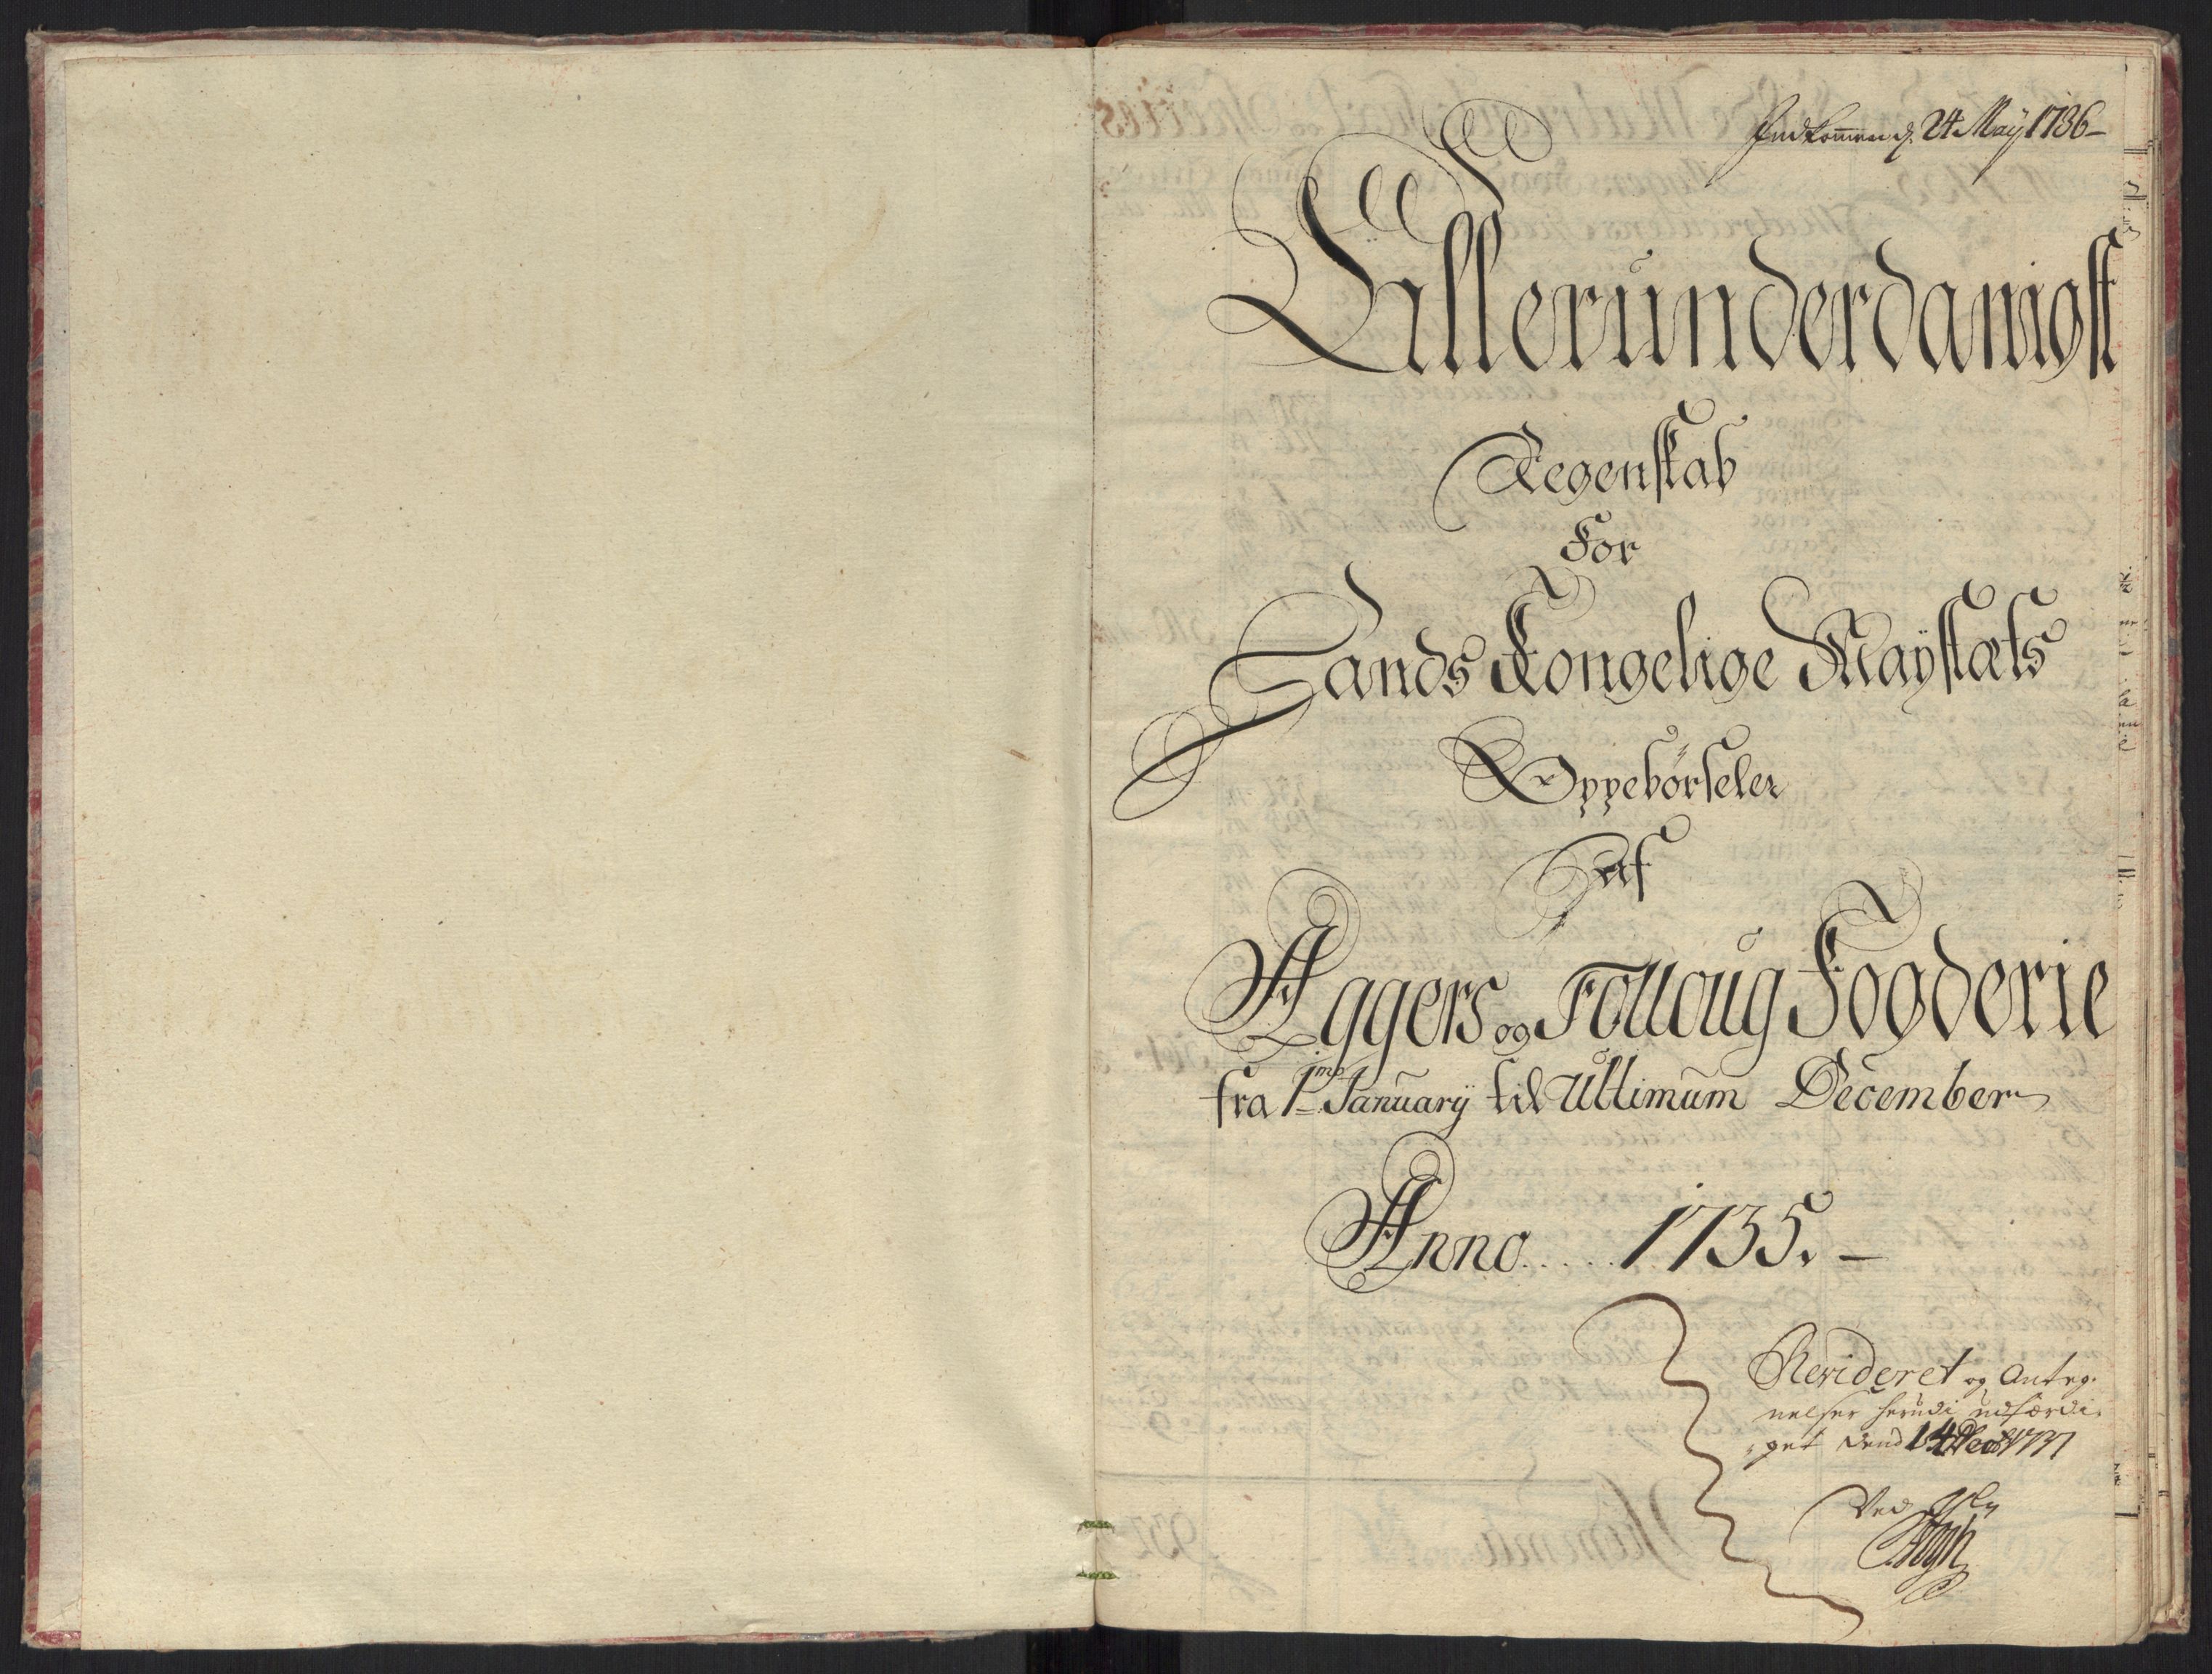 Indkommen d. 24 Maÿ 1736
Allerunderdanigst
Regenskab
For
Hands Kongelige Maÿstæts
Oppebörseler
Af
Aggers og Folloug Fogderie
fra 1mo Januarÿ til Ultimum December
Anno ..... 1735. –
Revideret og Anteg-
nelser herudi udfærdi-
get dend 14 Decbr 1737
Ved